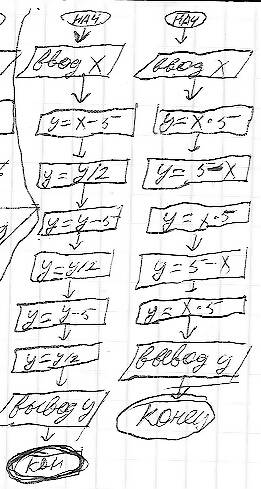 нач
ввод x
y=x-5
y=y/2
y=y-5
y=y/2
y=y-5
y=y/2
вывод y
кон
нач
ввод x
y=x·5
y=5-x
y=x·5
y=5-x
y=x·5
вывод y
конец